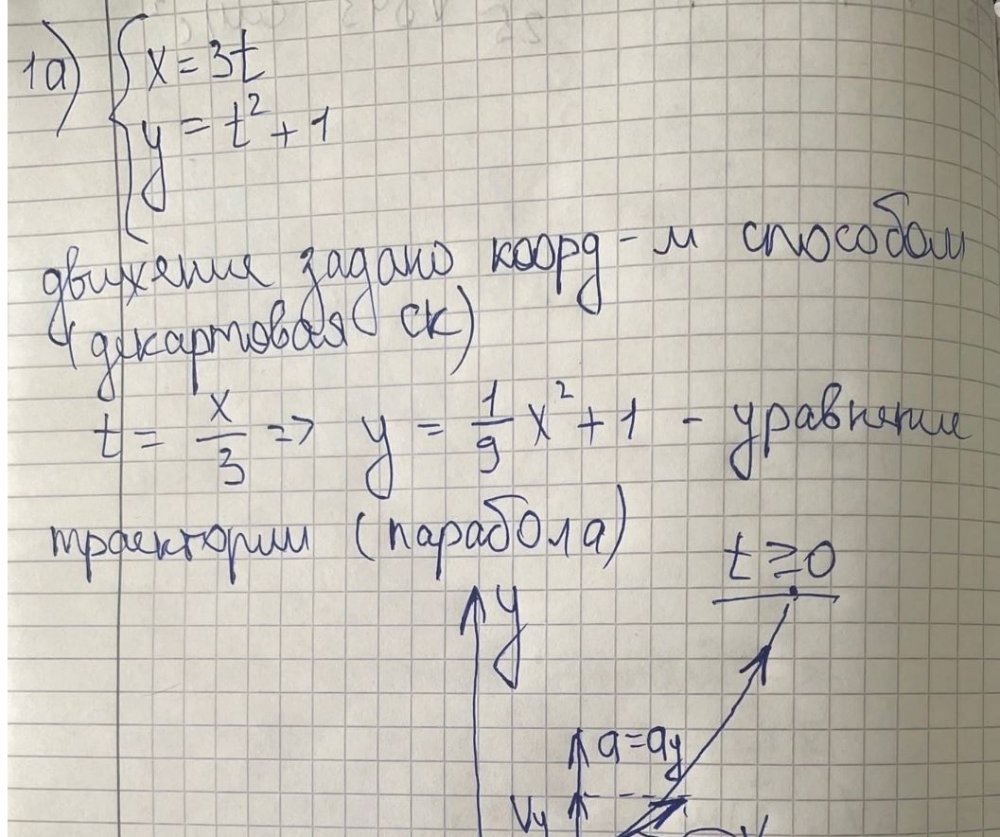 1а) { x = 3t
y = t² + 1
движение задано коорд-м способом
(декартовая ск)
t = x/3 => y = 1/9 x² + 1 - уравнение
траектории (парабола)
t ≥ 0
y
a = ay
Vy